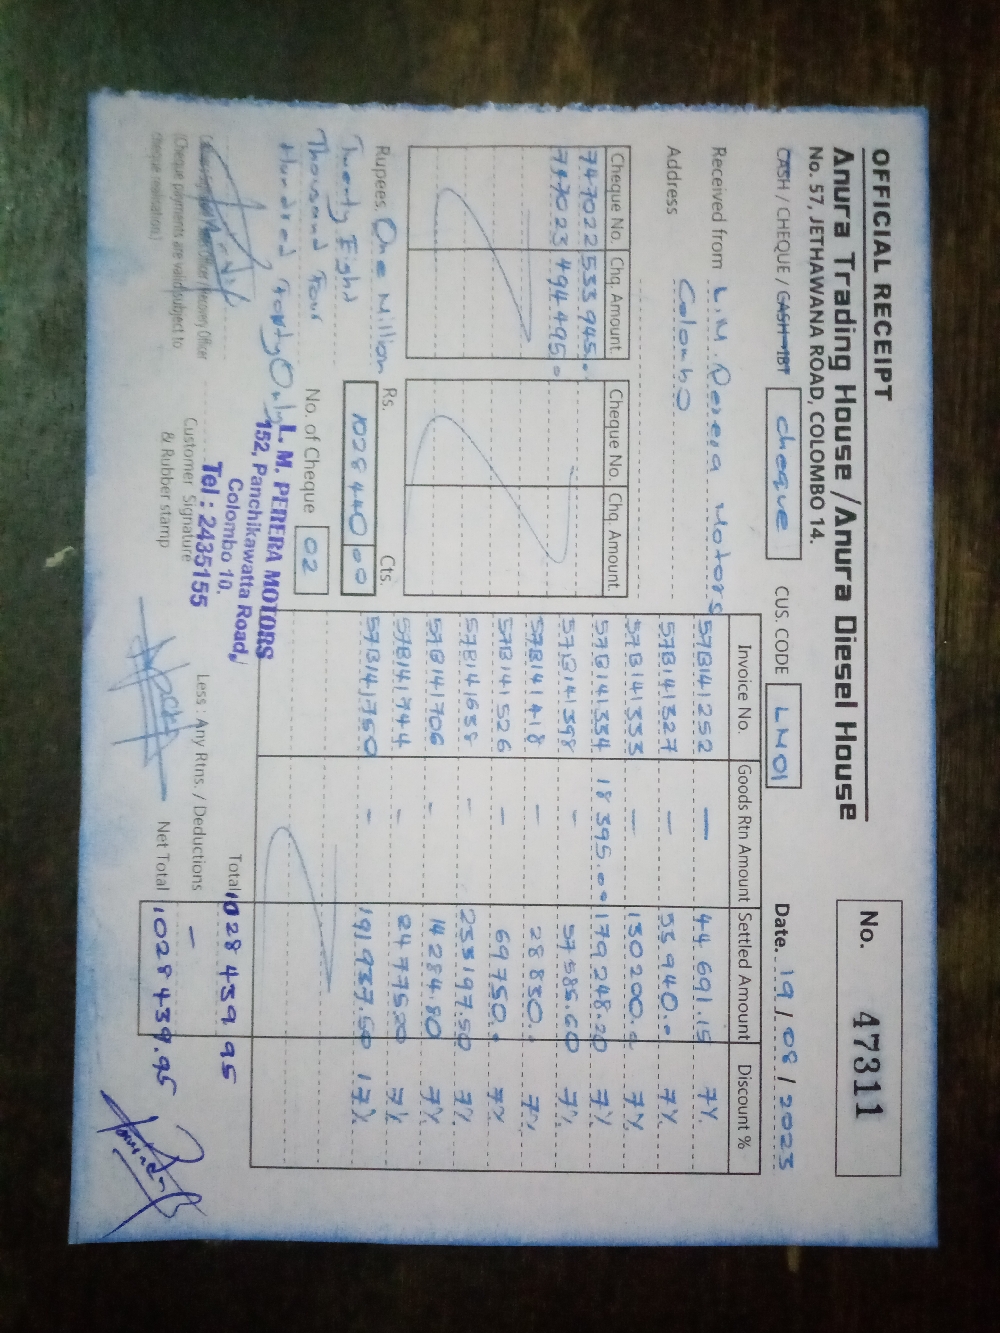 OFFICIAL RECEIPT
No. 47311
Anura Trading House /Anura Diesel House
No. 57, JETHAWANA ROAD, COLOMBO 14.
CASH / CHEQUE / CASH-IBT cheque CUS. CODE LM01 Date. 19 / 08 / 2023
Received from L.M. Perera Motors
Address Colombo
Cheque No. Chq. Amount. Cheque No. Chq. Amount.
747022 533 945.
747023 494 495.
Invoice No. Goods Rtn Amount Settled Amount Discount %
57B141252 — 44 691.15 7%
57B141327 — 53 940. 7%
57B141333 — 130 200. 7%
57B141334 18 395.00 179 248.20 7%
57B141398 — 57 585.60 7%
57B141418 — 28 830. 7%
57B141526 — 69 750. 7%
57B141638 — 233 197.50 7%
57B141706 — 14 284.80 7%
57B141744 — 24 775.20 7%
57B141750 — 191 937.50 17%
Rupees, One Million
Twenty Eight
Thousand Four
Hundred Forty Only
Rs. Cts.
1028 440 00
No. of Cheque 02
L. M. PERERA MOTORS
152, Panchikawatta Road,
Colombo 10.
Tel : 2435155
Customer Signature
& Rubber stamp
Officer / Recovery Officer
(Cheque payments are valid subject to
cheque realisation.)
Total 1028 439 95
Less : Any Rtns. / Deductions —
Net Total 1028 439.95